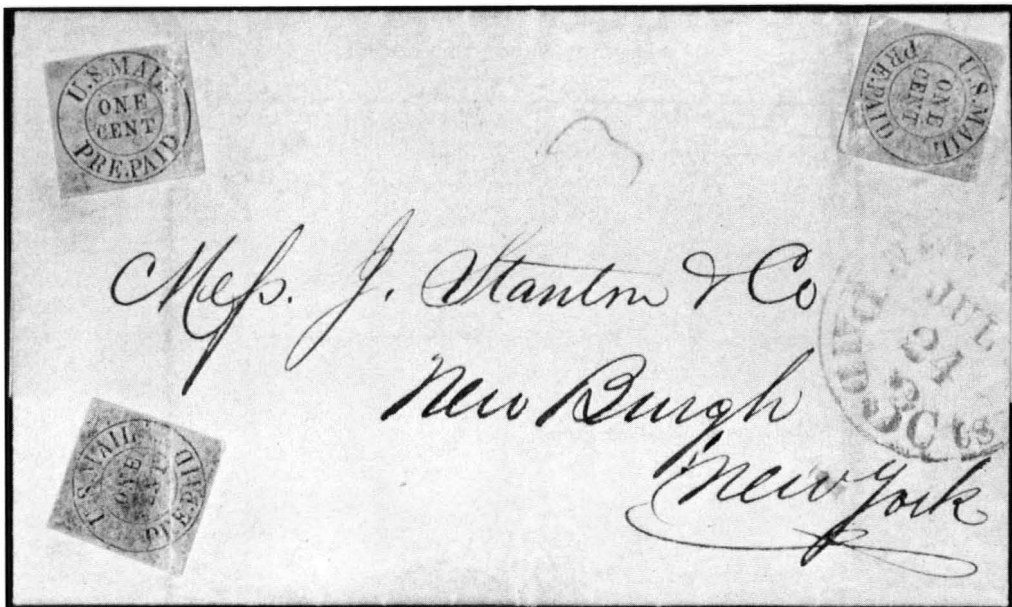 U.S.MAIL
ONE
CENT
PRE.PAID
U.S.MAIL
ONE
CENT
PRE.PAID
3
Mess. J. Stanton & Co
New Burgh
New York
PAID
JUL
24
3 Cts
U.S.MAIL
ONE
CENT
PRE.PAID